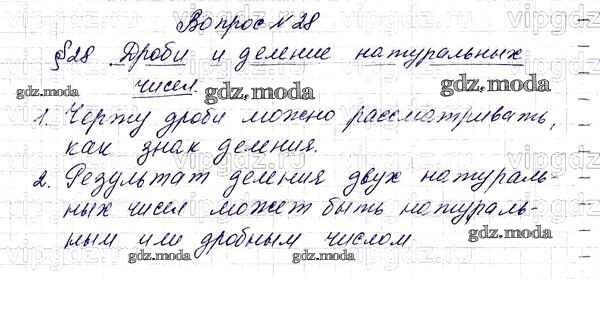 Вопрос №28
§28 Дроби и деление натуральных
чисел
1. Черту дроби можно рассматривать,
как знак деления.
2. Результат деления двух натураль-
ных чисел может быть натураль-
ным или дробным числом
gdz.moda
gdz.moda
gdz.moda
gdz.moda
gdz.moda
gdz.moda
vipgdz.ru